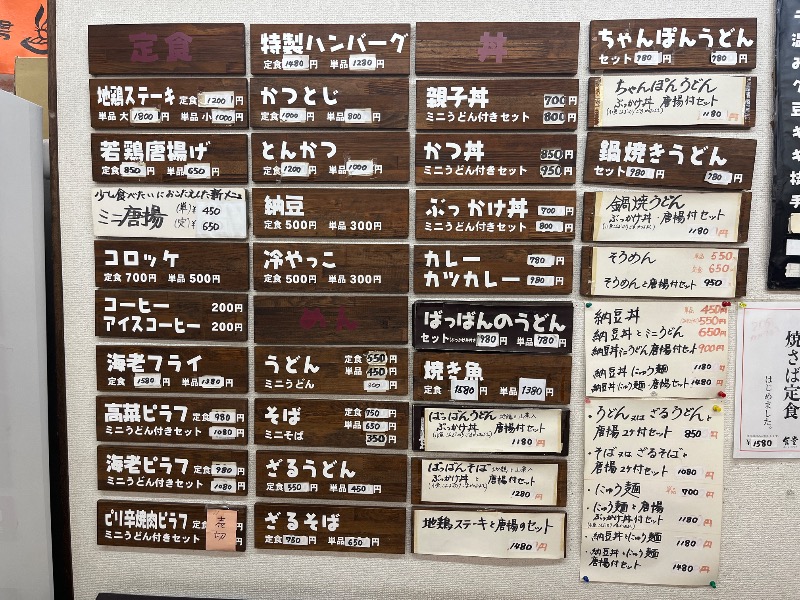 定食
地鶏ステーキ 定食 1200円
単品 大 1800円 単品 小 1000円
若鶏唐揚げ
定食 850円 単品 650円
少し食べたいにおこたえした新メニュー
ミニ唐揚 (単)¥ 450
(定)¥ 650
コロッケ
定食 700円 単品 500円
コーヒー 200円
アイスコーヒー 200円
海老フライ
定食 1580円 単品 1380円
高菜ピラフ 定食 980円
ミニうどん付きセット 1080円
海老ピラフ 定食 980円
ミニうどん付きセット 1080円
ピリ辛焼肉ピラフ 定食
ミニうどん付きセット
売切
特製ハンバーグ
定食 1480円 単品 1280円
かつとじ
定食 1000円 単品 800円
とんかつ
定食 1200円 単品 1000円
納豆
定食 500円 単品 300円
冷やっこ
定食 500円 単品 300円
めん
うどん 定食 550円
単品 450円
ミニうどん 300円
そば 定食 750円
単品 650円
ミニそば 350円
ざるうどん
定食 550円 単品 450円
ざるそば
定食 750円 単品 650円
丼
親子丼 700円
ミニうどん付きセット 800円
かつ丼 850円
ミニうどん付きセット 950円
ぶっかけ丼 700円
ミニうどん付きセット 800円
カレー 780円
カツカレー 980円
ばっぱんのうどん
セット 980円 単品 780円
焼き魚
定食 1580円 単品 1380円
ばっぱんうどん
ぶっかけ丼 唐揚付セット
1180円
ばっぱんそば
ぶっかけ丼 と 唐揚付セット
1280円
地鶏ステーキと唐揚げセット
1480円
ちゃんぽんうどん
セット 980円 780円
ちゃんぽんうどん
ぶっかけ丼 唐揚付セット
1180円
鍋焼きうどん
セット 980円 780円
鍋焼うどん
ぶっかけ丼 唐揚付セット
1180円
そうめん 単品 550円
定食 650円
そうめんと唐揚付セット 950
納豆丼 単品 450円
550円
納豆丼とミニうどん 650円
納豆丼ミニうどん唐揚付セット 900円
納豆丼 にゅう麺 1180円
納豆丼にゅう麺唐揚付セット 1480円
・うどん又はざるうどんと
唐揚2ケ付セット 850円
・そば又はざるそばと
唐揚2ケ付セット 1080円
・にゅう麺 単品 700円
・にゅう麺と唐揚
ぶっかけ丼付セット 1180円
・納豆丼とにゅう麺 1180円
・納豆丼とにゅう麺
唐揚付セット 1480円
焼さば定食
はじめました。
¥1580
食堂